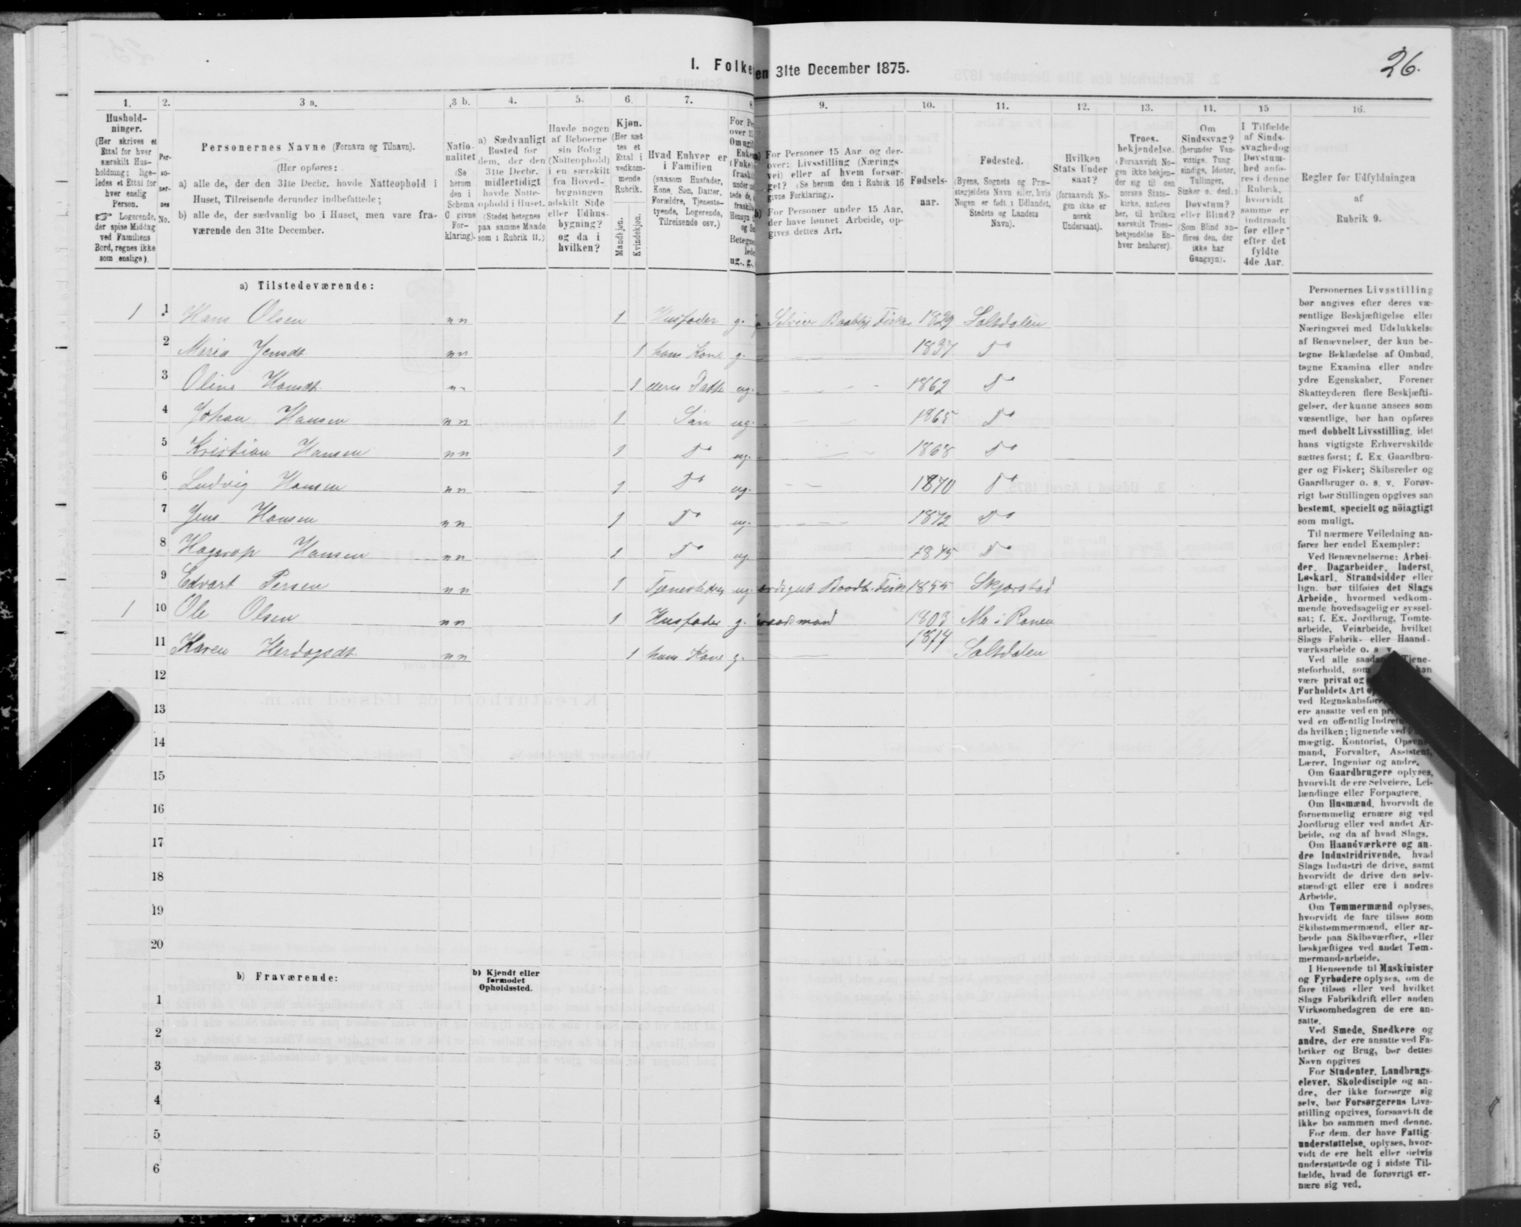 26.
I. Folke en 31te December 1875.
1. 2. 3 a. 3 b. 4. 5. 6. 7. 8 9. 10. 11. 12. 13. 14. 15 16.
Hushold-
ninger.
(Her skrives et
Ettal for hver
særskilt Hus-
holdning; lige-
ledes et Ettal for
hver enslig
Person.
☞ Logerende,
der spise Middag
ved Familiens
Bord, regnes ikke
som enslige).
Per-
so-
ner-
nes
No.
Personernes Navne (Fornavn og Tilnavn).
(Her opføres:
a) alle de, der den 31te Decbr. havde Natteophold i
Huset, Tilreisende derunder indbefattede;
b) alle de, der sædvanlig bo i Huset, men vare fra-
værende den 31te December.
Natio-
nalitet
(Se
herom
den i
Schema
C givne
For-
klaring).
a) Sædvanligt
Bosted for
dem, der den
31te Decbr.
midlertidigt
havde Natte-
ophold i Huset.
(Stedet betegnes
paa samme Maade
som i Rubrik 11.)
Havde nogen
af Beboerne
sin Bolig
(Natteophold)
i en særskilt
fra Hoved-
bygningen
adskilt Side
eller Udhus-
bygning?
og da i
hvilken?
Kjøn.
(Her sæt-
tes et
Ettal i
vedkom-
mende
Rubrik.
Mandkjøn.
Kvindekjøn.
Hvad Enhver er
i Familien
(saasom Husfader,
Kone, Søn, Datter,
Forældre, Tjeneste-
tyende, Logerende,
Tilreisende osv.)
For Personer 15 Aar og der-
over: Livsstilling (Nærings-
vei) eller af hvem forsør-
get? (Se herom den i Rubrik 16
givne Forklaring).
For Personer under 15 Aar,
der have lønnet Arbeide, op-
gives dettes Art.
Fødsels-
aar.
Fødested.
(Byens, Sognets og Præ-
stegjeldets Navn eller, hvis
Nogen er født i Udlandet,
Stedets og Landets
Navn).
Hvilken
Stats Under
saat?
(forsaavidt No-
gen ikke er
norsk
Undersaat).
Troes-
bekjendelse.
(Forsaavidt No-
gen ikke bekjen-
der sig til den
norske Stats-
kirke, anføres
her, til hvilken
særskilt Troes-
bekjendelse En-
hver henhører).
Om
Sindssvag?
(herunder Van-
vittige, Tung-
sindige, Idioter,
Tullinger,
Sinker o. desl.)
Døvstum?
eller Blind?
(Som Blind an-
føres den, der
ikke har
Gangsyn).
I Tilfælde
af Sinds-
svaghed og
Døvstum-
hed anfø-
res i denne
Rubrik,
hvorvidt
samme er
indtraadt
før eller
efter det
fyldte
4de Aar.
Regler for Udfyldningen
af
Rubrik 9.
a) Tilstedeværende:
1 1 Hans Olsen nn 1 Husfader g. Selveier 1829 Saltdalen
2 Maria Jensdt nn 1 hans Kone g. 1837 Do
3 Oline Hansdt 1 deres Datter ug. 1862 Do
4 Johan Hansen nn 1 Søn ug. 1865 Do
5 Kristian Hansen nn 1 Do ug. 1868 Do
6 Ludvig Hansen nn 1 Do ug. 1870 Do
7 Jens Hansen nn 1 Do ug. 1872 Do
8 Hagerup Hansen nn 1 Do ug 1875 Do
9 Edvart Persen nn 1 ug. 1855 Skjerstad
1 10 Ole Olsen nn 1 Husfader g. 1803 Mo i Ranen
11 Karen nn 1 hans Kone g. 1814 Saltdalen
12
13
14
15
16
17
18
19
20
b) Fraværende:
b) Kjendt eller
formodet
Opholdssted.
1
2
3
4
5
6
Personernes Livsstilling
bør angives efter deres væ-
sentlige Beskjæftigelse eller
Næringsvei med Udelukkelse
af Benævnelser, der kun be-
tegne Beklædelse af Ombud,
tagne Examina eller andre
ydre Egenskaber. Forener
Skatteyderen flere Beskjæfti-
gelser, der kunne ansees som
væsentlige, bør han opføres
med dobbelt Livsstilling, idet
hans vigtigste Erhvervskilde
sættes først; f. Ex Gaardbru-
ger og Fisker; Skibsreder og
Gaardbruger o. s. v. Forøv-
rigt bør Stillingen opgives saa
bestemt, specielt og nøiagtigt
som muligt.
Til nærmere Veiledning an-
føres her endel Exempler:
Ved Benævnelserne: Arbei-
der, Dagarbeider, Inderst,
Løskarl, Strandsidder eller
lign. bør tilføies det Slags
Arbeide, hvormed vedkom-
mende hovedsagelig er syssel-
sat; f. Ex. Jordbrug, Tomte-
arbeide, Veiarbeide, hvilket
Slags Fabrik- eller Haand-
værksarbeide o. s. v.
Ved alle
være privat og
Forholdets Art
ved en offentlig
da hvilken; lignende ved
mægtig, Kontorist,
mand, Forvalter, Assistent,
Lærer, Ingeniør og andre.
Om Gaardbrugere oplyses,
hvorvidt de ere Selveiere, Lei-
lændinge eller Forpagtere.
Om Husmænd, hvorvidt de
fornemmelig ernære sig ved
Jordbrug eller ved andet Ar-
beide, og da af hvad Slags.
Om Haandværkere og an-
dre Industridrivende, hvad
Slags Industri de drive, samt
hvorvidt de drive den selv-
stændigt eller ere i andres
Arbeide.
Om Tømmermænd oplyses,
hvorvidt de fare tilsøs som
Skibstømmermænd, eller ar-
beide paa Skibsværfter, eller
beskjæftiges ved andet Tøm-
mermandarbeide.
I Henseende til Maskinister
og Fyrbødere oplyses, om de
fare tilsøs eller ved hvilket
Slags Fabrikdrift eller anden
Virksomhedsgren de ere an-
satte.
Ved Smede, Snedkere og
andre, der ere ansatte ved Fa-
briker og Brug, bør dettes
Navn opgives
For Studenter, Landbrugs-
elever, Skoledisciple og an-
dre, der ikke forsørge sig
selv, bør Forsørgerens Livs-
stilling opgives, forsaavidt de
ikke bo sammen med denne.
For dem, der have Fattig-
understøttelse, oplyses, hvor-
vidt de ere helt eller delvis
understøttede og i sidste Til-
fælde, hvad de forøvrigt er-
nære sig ved.